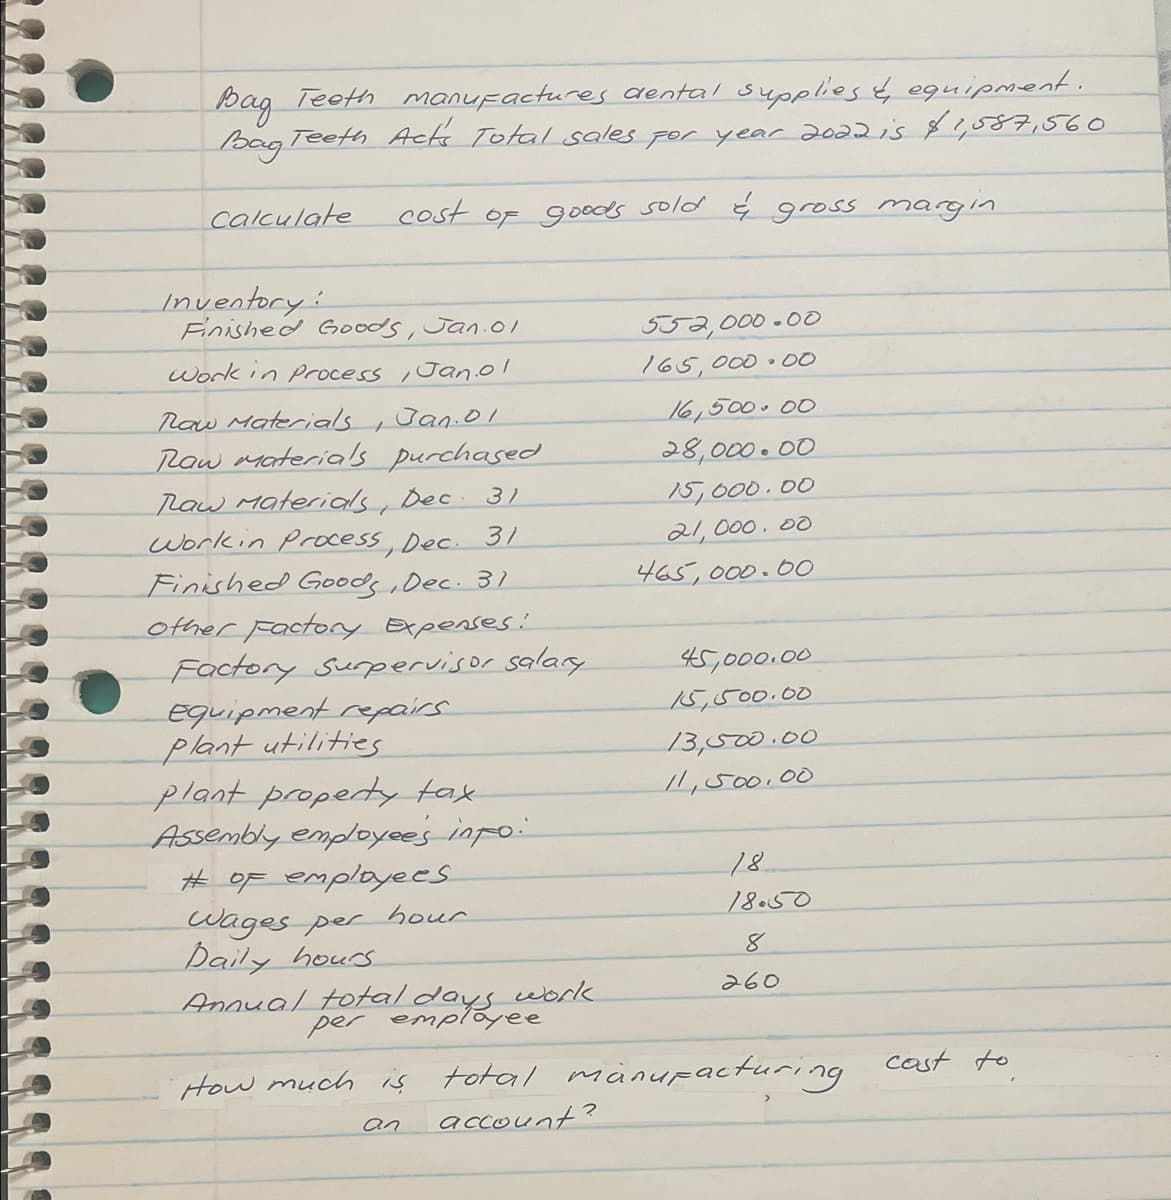 Bag Teeth manufactures dental supplies & equipment.
Bag Teeth Act's Total sales for year 2022 is $1,587,560
Calculate cost of goods sold & gross margin
Inventory:
Finished Goods, Jan. 01 552,000.00
Work in Process, Jan. 01 165,000.00
Raw Materials, Jan. 01 16,500.00
Raw materials purchased 28,000.00
Raw Materials, Dec. 31 15,000.00
Work in Process, Dec. 31 21,000.00
Finished Goods, Dec. 31 465,000.00
Other Factory Expenses:
Factory Surpervisor salary 45,000.00
Equipment repairs 15,500.00
Plant utilities 13,500.00
Plant property tax 11,500.00
Assembly employee's info:
# of employees 18
Wages per hour 18.50
Daily hours 8
Annual total days work 260
per employee
How much is total manufacturing cost to
an account?